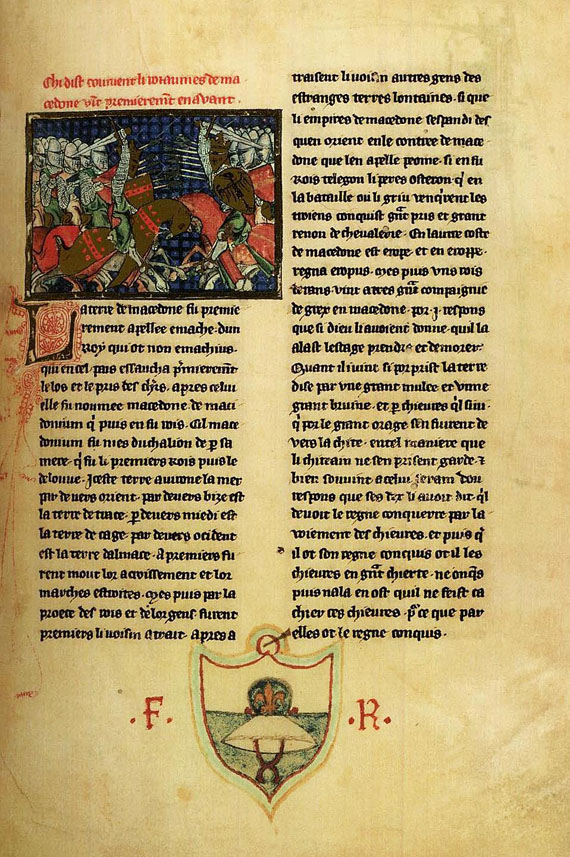 Chi dist coument li roiaumes de ma
cedone vīt premieremt̄ en auant .
La terre de macedone fu premie
rement apellee emache . dun
Roy qui ot non emachius .
qui en cel pais essaucha p̄mieremt̄
le los et le pris des . apres celui
elle fu noumee macedone de maci
donium q̄ puis en fu rois . Cil mace
donium fu nies duchalion de p̄ sa
mere q̄ fu li premiers rois puis le
delouue . Iceste terre auirone la mer
par deuers orient . par deuers bize est
la terre de trace . p̄ deuers miedi est
la terre de cage . par deuers occident
est la terre dalmace . A premiers fu
rent mout lor acroissement et lor
marches estroites . Mes puis par la
proece des rois et de lor gens furent
premiers li uoisin atrait . Apres a
traisent li uoisin autres gens des
estranges terres lontaines . si que
li empires de macedone sespandi des
quen orient en le contree de mace
done que len apelle peone . si en fu
Rois telegon li peres osteron q̄ en
la bataille ou li griu venq̄rent les
troiens conquist gn̄t pris et grant
renon de cheualerie . En lautre coste
de macedone est erope . et en eroppe .
regna eropus . Mes puis uns rois
vint a tres gn̄t compaignie
de grex en macedone . por . j . respons
que si dieu li auoient donne . quil la
alast lestage prendre et demorer .
Quant il uint si porprist la terre
dise par vne grant mulee et vnne
grant bruine . et p̄ chieures q̄l siui .
q̄ por le grant orage sen fuirent de
vers la chite . en tel maniere que
li chiteain ne sen prisent garde . ⁊
bien souuint a celui dou
respons que ses dex li auoit dit q̄l
deuoit le regne conquerre par la
uoiement des chieures . et puis q̄
il ot son regne conquis ot il les
chieures en gn̄t chierte . ne onq̄s
puis nala en ost quil ne feist ca
chier ces chieures . p̄ ce que par
elles ot le regne conquis .
. F . . R .